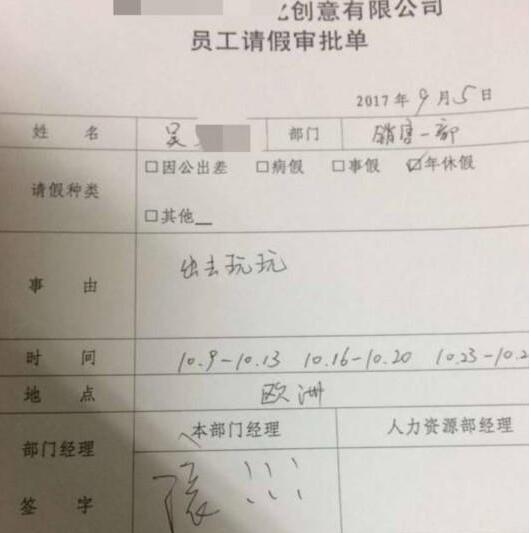 创意有限公司
员工请假审批单
2017年9月5日
姓 名 吴 部门 销售一部
请假种类 □因公出差 □病假 □事假 ☑年休假
□其他__
事 由 出去玩玩
时 间 10.9-10.13 10.16-10.20 10.23-10.2
地 点 欧洲
部门经理 本部门经理 人力资源部经理
签 字 张